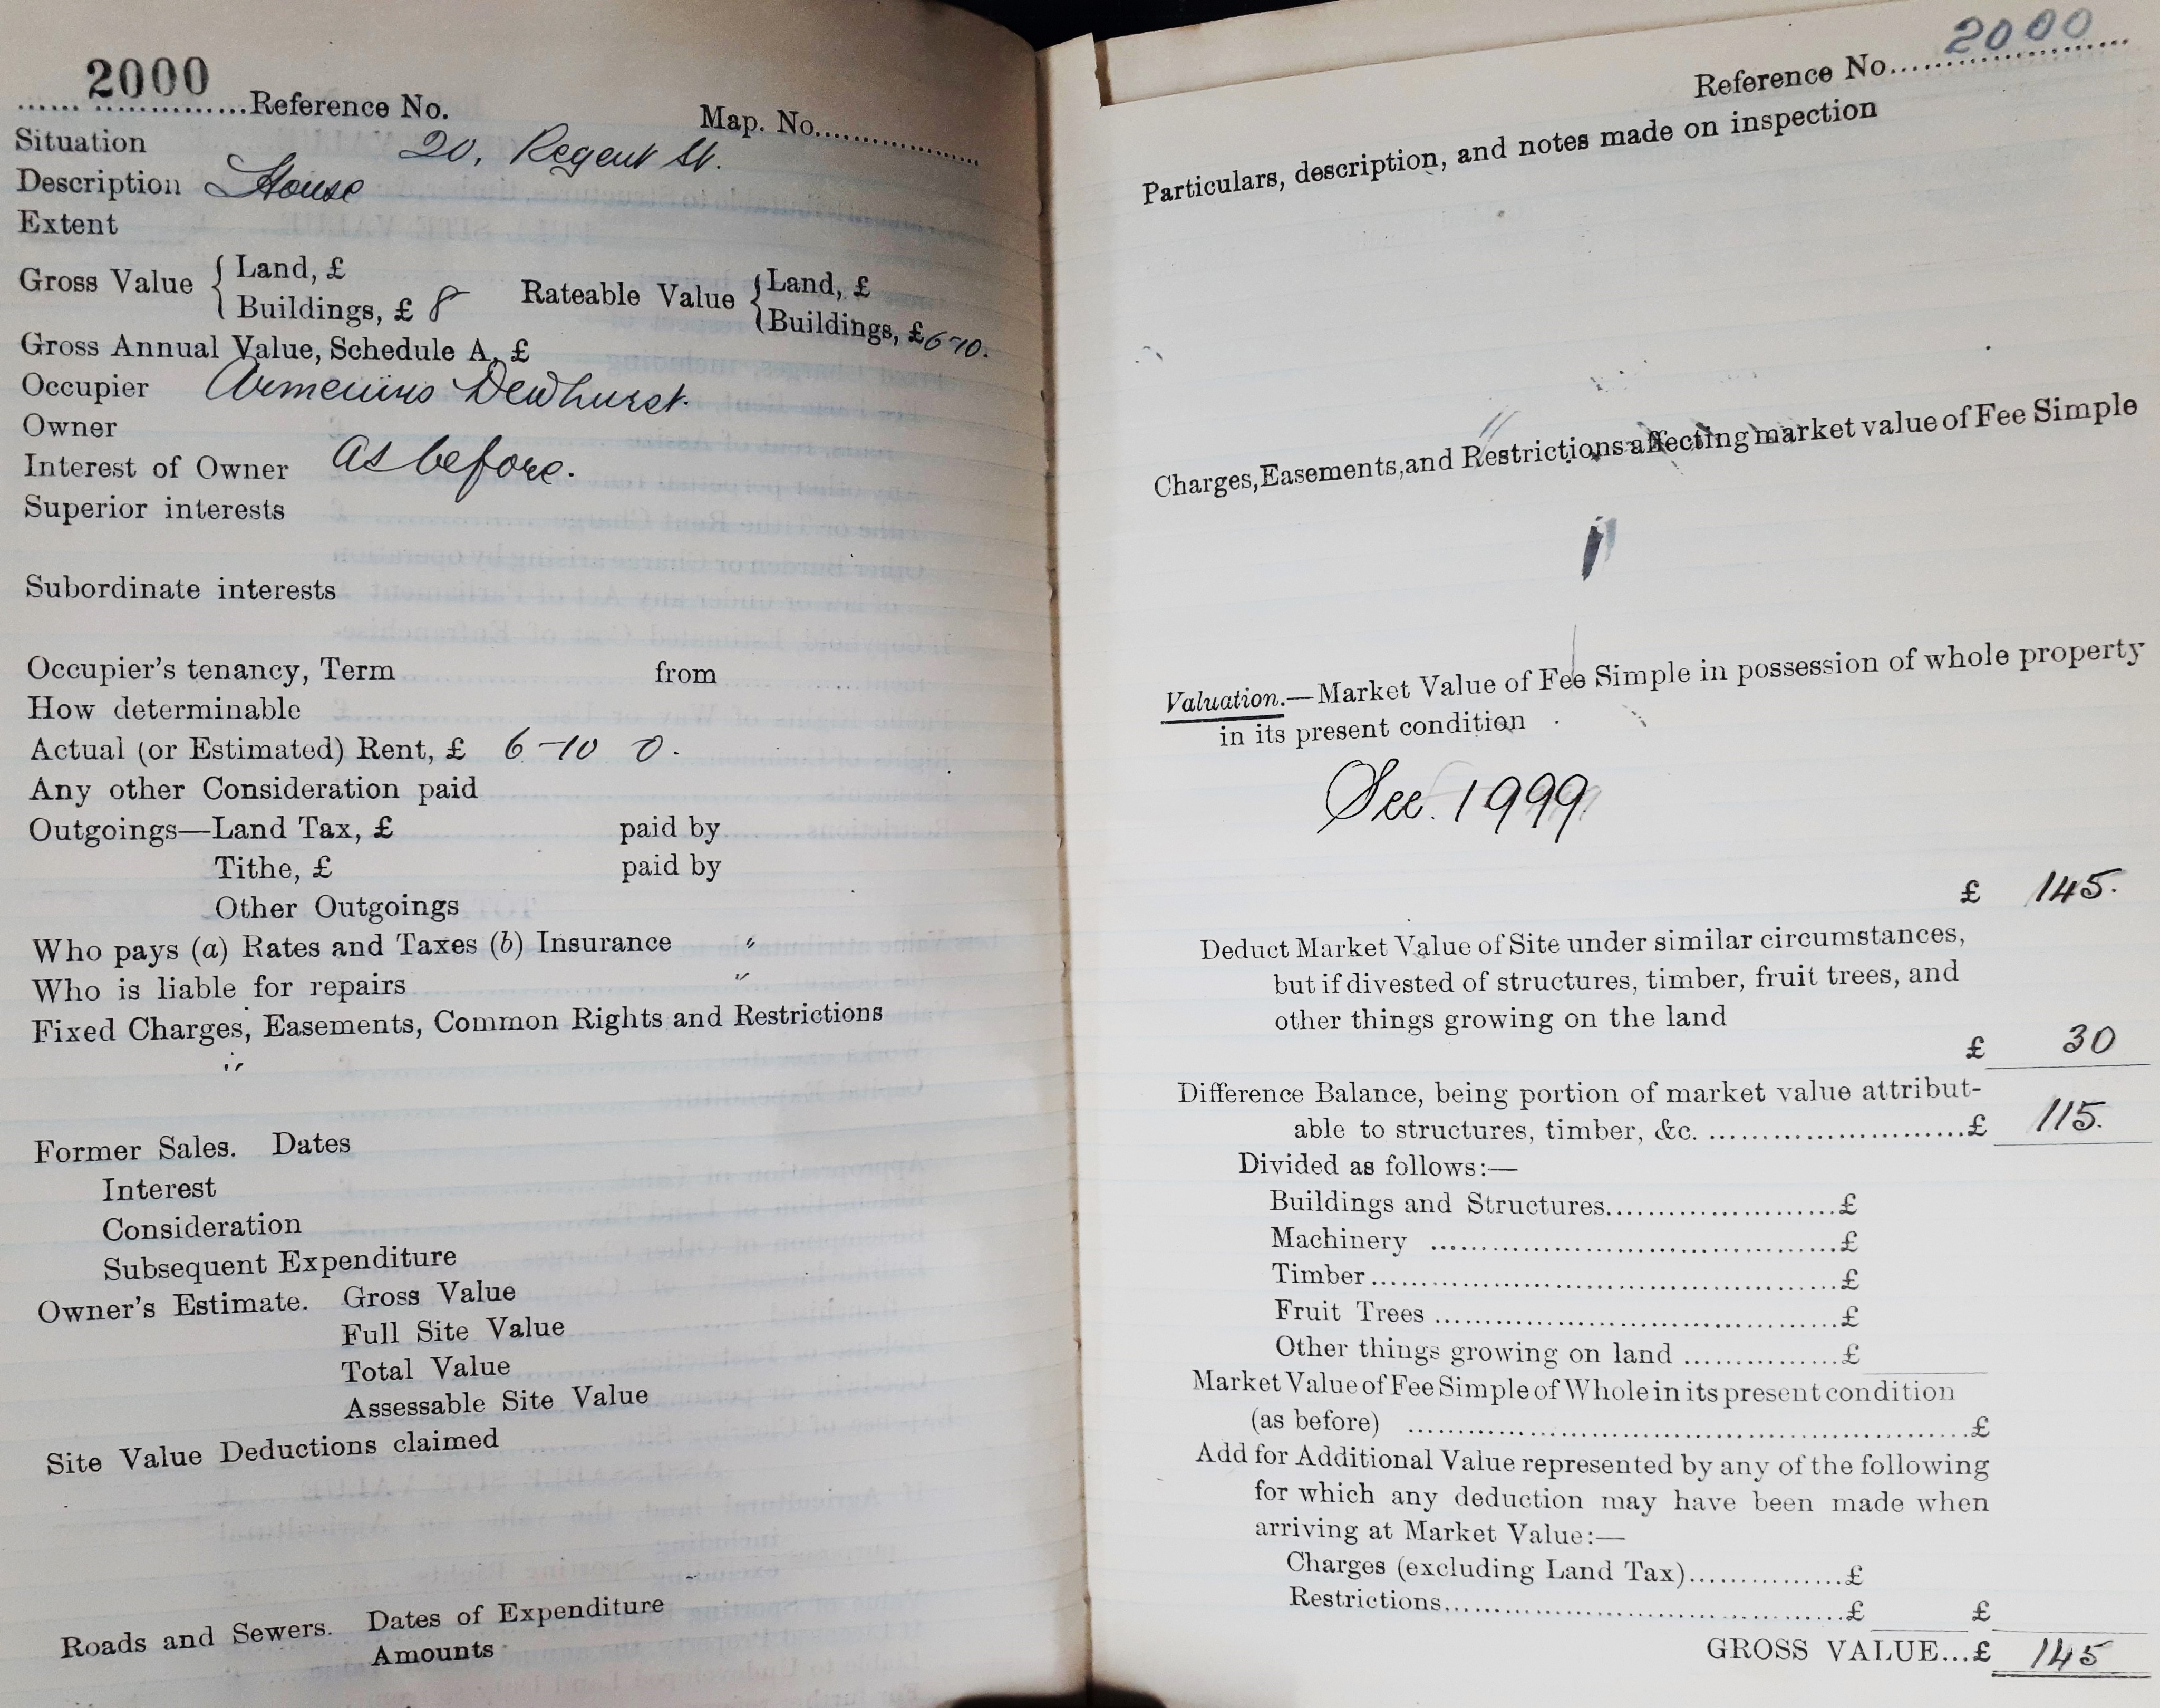 2000
Reference No. Map. No.
Situation 20, Regent St.
Description House
Extent
Gross Value { Land, £
Buildings, £ 8
Rateable Value { Land, £
Buildings, £ 6-10.
Gross Annual Value, Schedule A, £
Occupier Armenius Dewhurst.
Owner
Interest of Owner As before.
Superior interests
Subordinate interests
Occupier's tenancy, Term from
How determinable
Actual (or Estimated) Rent, £ 6-10 0.
Any other Consideration paid
Outgoings—Land Tax, £ paid by
Tithe, £ paid by
Other Outgoings
Who pays (a) Rates and Taxes (b) Insurance "
Who is liable for repairs "
Fixed Charges, Easements, Common Rights and Restrictions
"
Former Sales. Dates
Interest
Consideration
Subsequent Expenditure
Owner's Estimate. Gross Value
Full Site Value
Total Value
Assessable Site Value
Site Value Deductions claimed
Roads and Sewers. Dates of Expenditure
Amounts
Reference No. 2000
Particulars, description, and notes made on inspection
Charges, Easements, and Restrictions affecting market value of Fee Simple
Valuation.—Market Value of Fee Simple in possession of whole property
in its present condition
See. 1999
£ 145.
Deduct Market Value of Site under similar circumstances,
but if divested of structures, timber, fruit trees, and
other things growing on the land
£ 30
Difference Balance, being portion of market value attribut-
able to structures, timber, &c. ........................£ 115.
Divided as follows:—
Buildings and Structures........................£
Machinery ........................£
Timber........................£
Fruit Trees ........................£
Other things growing on land ...............£
Market Value of Fee Simple of Whole in its present condition
(as before) ........................£
Add for Additional Value represented by any of the following
for which any deduction may have been made when
arriving at Market Value:—
Charges (excluding Land Tax)...............£
Restrictions........................£ £
GROSS VALUE...£ 145